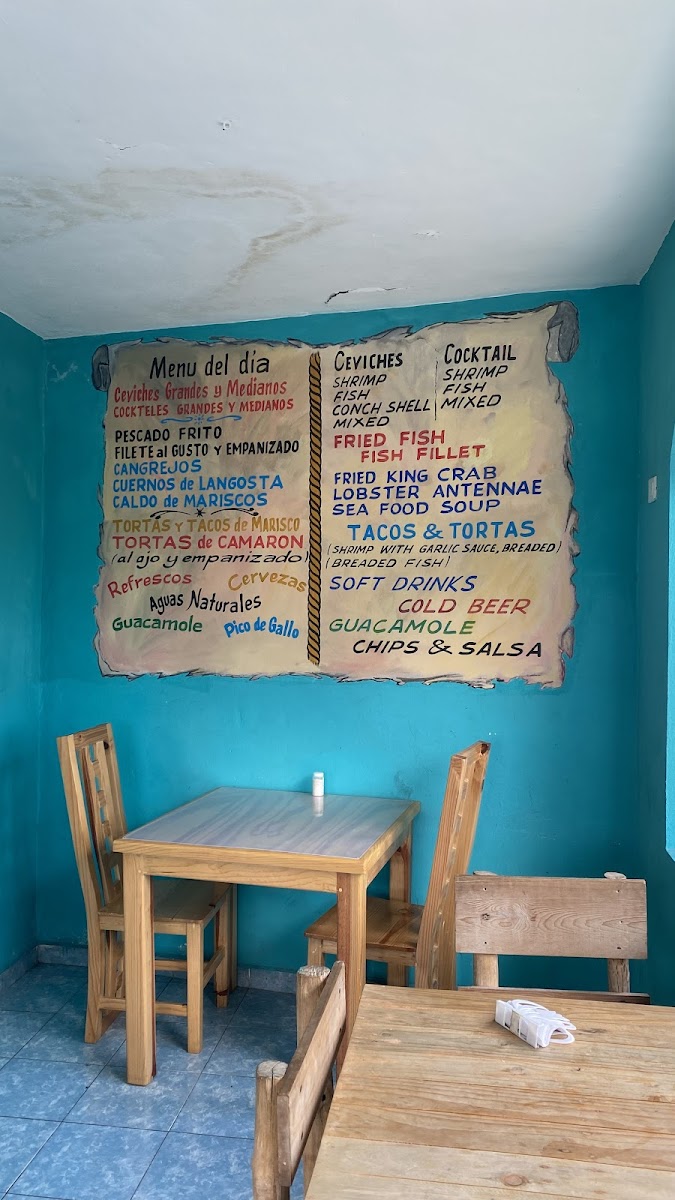 Menu del día
Ceviches Grandes y Medianos
COCKTELES GRANDES Y MEDIANOS
PESCADO FRITO
FILETE al GUSTO y EMPANIZADO
CANGREJOS
CUERNOS de LANGOSTA
CALDO de MARISCOS
TORTAS Y TACOS de MARISCO
TORTAS de CAMARON
(al ajo y empanizado)
Refrescos Cervezas
Aguas Naturales
Guacamole Pico de Gallo
CEVICHES
SHRIMP
FISH
CONCH SHELL
MIXED
COCKTAIL
SHRIMP
FISH
MIXED
FRIED FISH
FISH FILLET
FRIED KING CRAB
LOBSTER ANTENNAE
SEA FOOD SOUP
TACOS & TORTAS
(SHRIMP WITH GARLIC SAUCE, BREADED)
(BREADED FISH)
SOFT DRINKS
COLD BEER
GUACAMOLE
CHIPS & SALSA